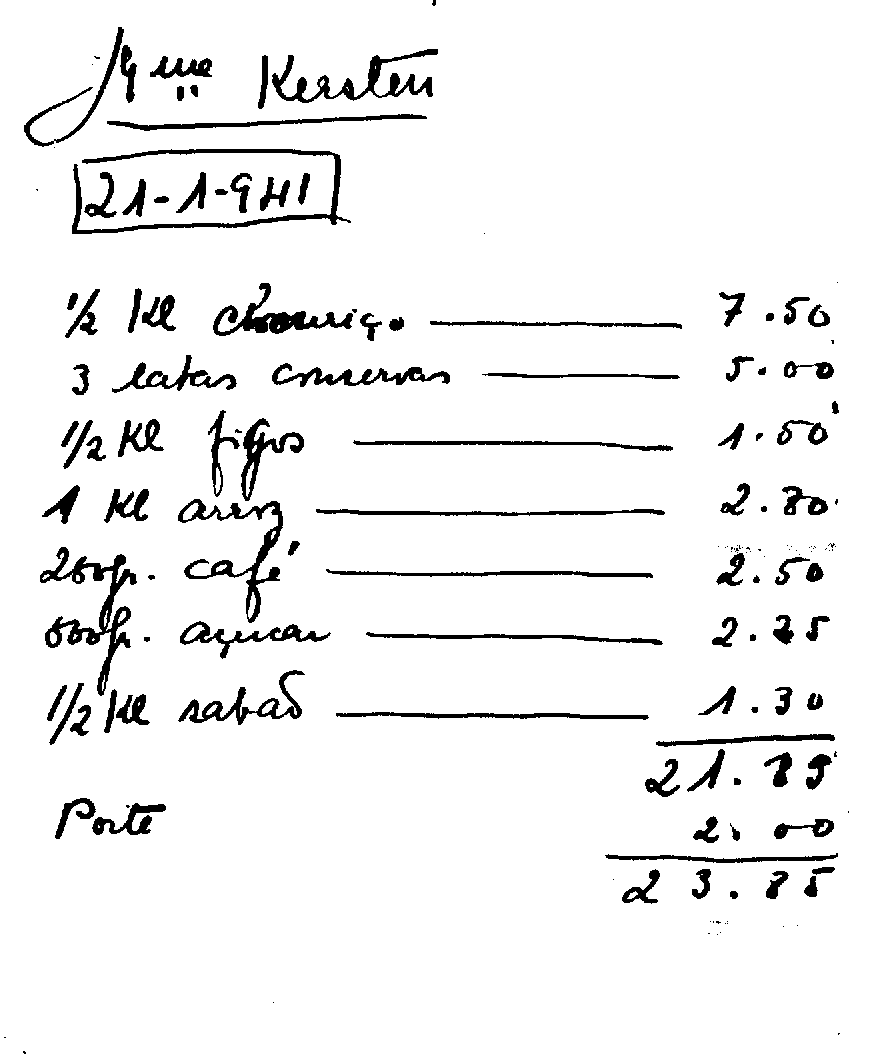 Mme Kersten
21-1-941
1/2 Kl chouriço 7.50
3 latas conservas 5.00
1/2 Kl figos 1.50
1 Kl arroz 2.80
250gr. café 2.50
500gr. açucar 2.25
1/2 Kl sabaõ 1.30
21.85
Porte 2.00
23.85